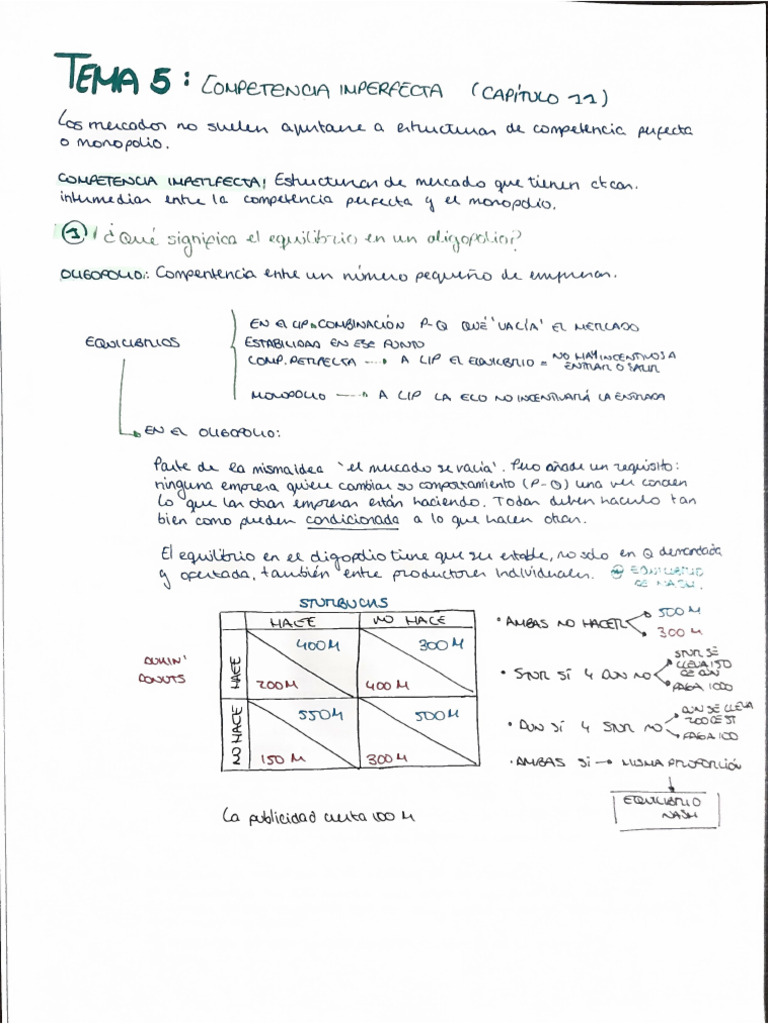 TEMA 5: COMPETENCIA IMPERFECTA (CAPÍTULO 11)
Los mercados no suelen ajustarse a estructuras de competencia perfecta
o monopolio.
COMPETENCIA IMPERFECTA: Estructuras de mercado que tienen ctcas.
intermedias entre la competencia perfecta y el monopolio.
1 ¿Qué significa el equilibrio en un oligopolio?
OLIGOPOLIO: Compentencia entre un número pequeño de empresas.
EQUILIBRIOS
EN EL LP COMBINACIÓN P-Q QUÉ 'VACÍA' EL MERCADO
ESTABILIDAD EN ESE PUNTO
COMP. PERFECTA → A L/P EL EQUILIBRIO = NO HAY INCENTIVOS A
ENTRAR O SALIR
MONOPOLIO → A L/P LA ECO NO INCENTIVARÁ LA ENTRADA
EN EL OLIGOPOLIO:
Parte de la misma idea 'el mercado se vacía'. Pero añade un requisito:
ninguna empresa quiere cambiar su comportamiento (P-Q) una vez conocen
lo que las otras empresas están haciendo. Todas deben hacerlo tan
bien como pueden condicionada a lo que hacen otras.
El equilibrio en el oligopolio tiene que ser estable, no solo en Q demandada
y ofertada, también entre productores individuales. EQUILIBRIO
DE NASH.
STURBUCKS
HACE NO HACE
DUNKIN'
DONUTS
HACE
400M 300M
200M 400M
NO HACE
550M 500M
150M 300M
• AMBAS NO HACER 500M
300M
• STUR SÍ Y DUN NO STUR SE
LLEVA 150
DE DUN
PAGA 100
• DUN SÍ Y STUR NO DUN SE LLEVA
200 DE ST
PAGA 100
• AMBAS SÍ → MISMA PROPORCIÓN
EQUILIBRIO
NASH
La publicidad cuesta 100 M